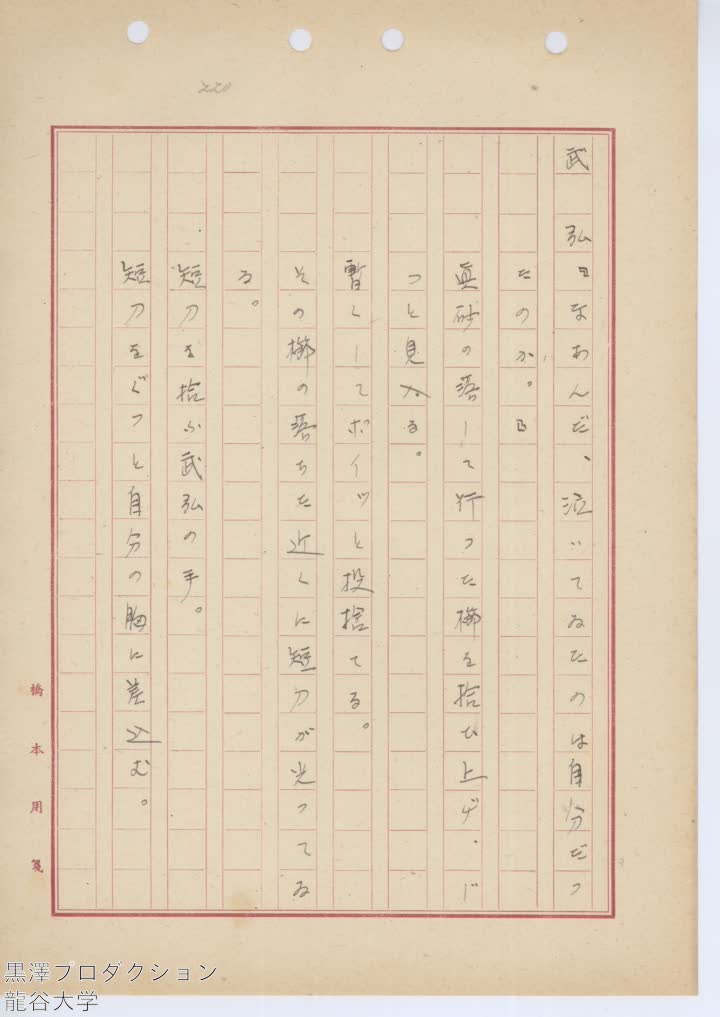 220
武 弘『なあんだ、泣いてゐたのは自分だつ
たのか。』
眞砂の落して行つた櫛を拾ひ上げ、ぢ
つと見入る。
暫くしてポイツと投捨てる。
その櫛の落ちた近くに短刀が光つてゐ
る。
短刀を拾ふ武弘の手。
短刀をぐつと自分の胸に差込む。
橋本用箋
黒澤プロダクション
龍谷大学